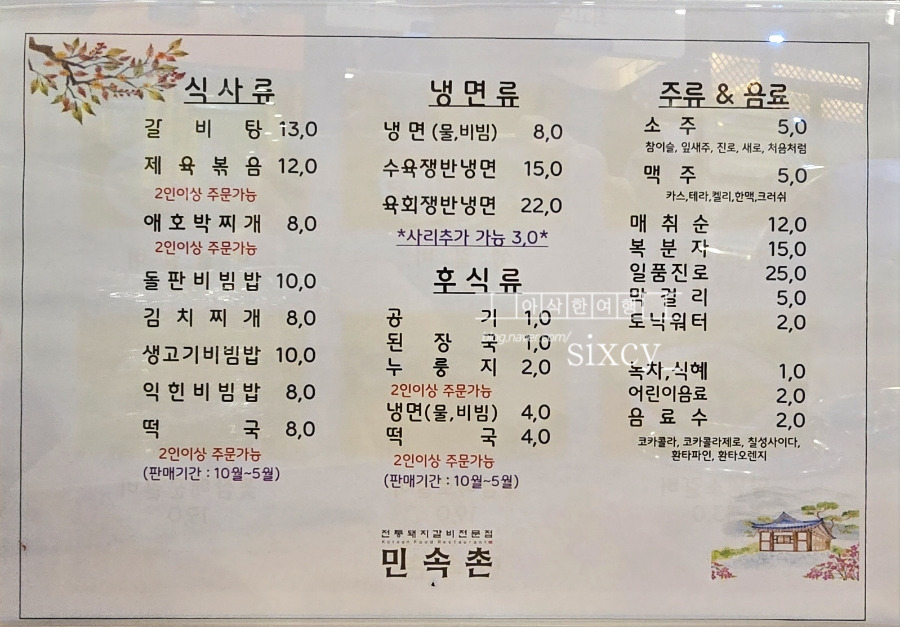 식사류
갈 비 탕 13,0
제 육 볶 음 12,0
2인이상 주문가능
애 호 박 찌 개 8,0
2인이상 주문가능
돌 판 비 빔 밥 10,0
김 치 찌 개 8,0
생고기비빔밥 10,0
익 힌 비 빔 밥 8,0
떡 국 8,0
2인이상 주문가능
(판매기간 : 10월~5월)
냉면류
냉 면 (물,비빔) 8,0
수육쟁반냉면 15,0
육회쟁반냉면 22,0
*사리추가 가능 3,0*
후식류
공 기 1,0
된 장 국 1,0
누 룽 지 2,0
2인이상 주문가능
냉면(물,비빔) 4,0
떡 국 4,0
2인이상 주문가능
(판매기간 : 10월~5월)
주류 & 음료
소 주 5,0
참이슬, 잎새주, 진로, 새로, 처음처럼
맥 주 5,0
카스,테라,켈리,한맥,크러쉬
매 취 순 12,0
복 분 자 15,0
일품진로 25,0
막 걸 리 5,0
토닉워터 2,0
녹차,식혜 1,0
어린이음료 2,0
음 료 수 2,0
코카콜라, 코카콜라제로, 칠성사이다,
환타파인, 환타오렌지
아삭한여행
blog.naver.com/
sixcy
전통돼지갈비전문점
Korean Food Restaurant
민속촌